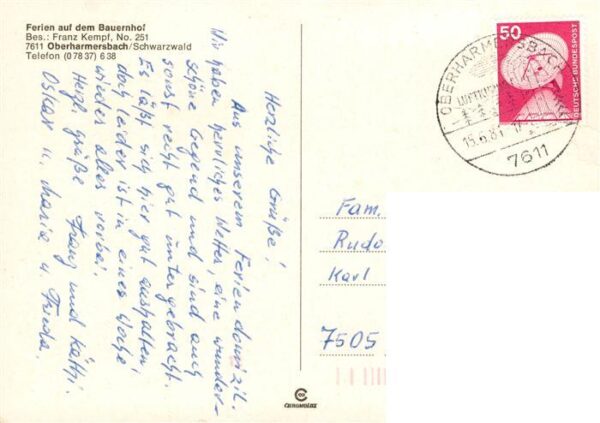 Ferien auf dem Bauernhof
Bes.: Franz Kempf, No. 251
7611 Oberharmersbach/Schwarzwald
Telefon (0 78 37) 6 38
Herzliche Grüße!
Aus unserem Feriendomizil.
Wir haben herrliches Wetter, eine wunder-
schöne Gegend und sind auch
sonst recht gut untergebracht.
Es läßt sich hier gut aushalten,
doch leider ist in einer Woche
wieder alles vorbei.
Herzl. Grüße Franz und Käthi.
Oskar u. Maria u. Frieda.
50
DEUTSCHE BUNDESPOST
OBERHARMERSBACH
LUFTKUR
15.6.81
7611
Fam.
Rudo
Karl
7505
CHROMOLUX